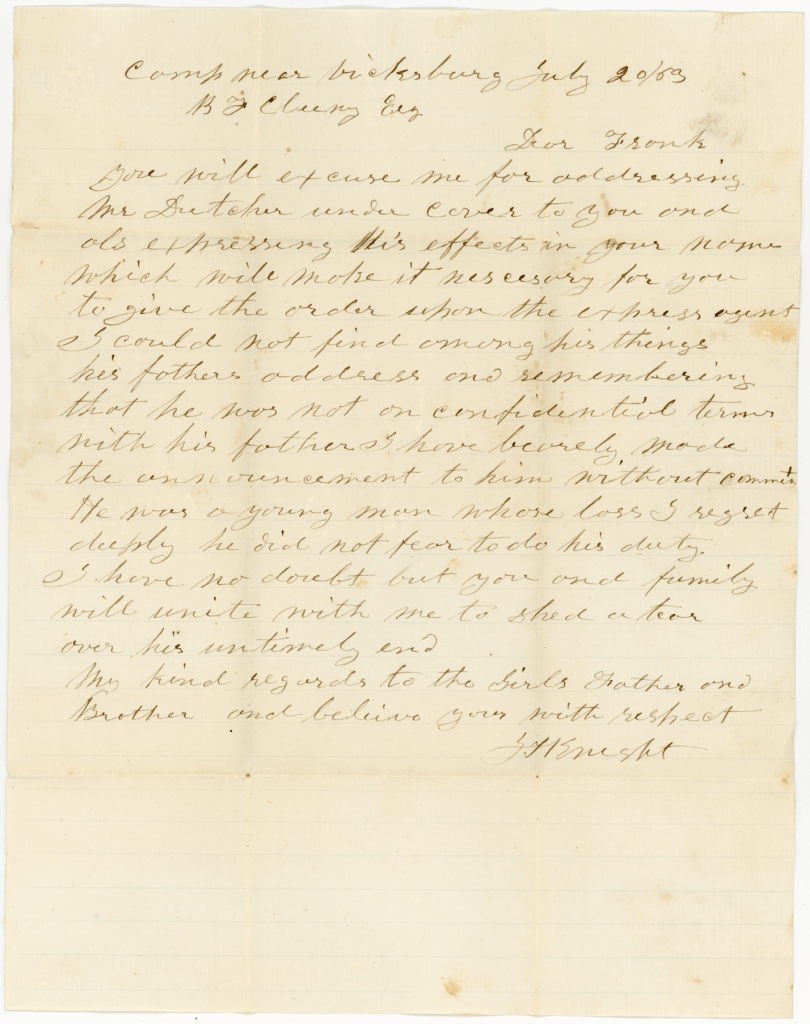 Camp near Vicksburg July 20/63
B F Cluny Esq
Dear Frank
You will excuse me for addressing
Mr Dutcher under cover to you and
als expressing His effects in your name
which will make it nescesary for you
to give the order upon the express agent
I could not find among his things
his fathers address and remembering
that he was not on confidential terms
with his father I have bearely made
the announcement to him without
He was a young man whose loss I regret
deeply he did not fear to do his duty
I have no doubt but you and family
will unite with me to shed a tear
over his untimely end
My kind regards to the Girls Father and
Brother and beleive your with respect
Knight